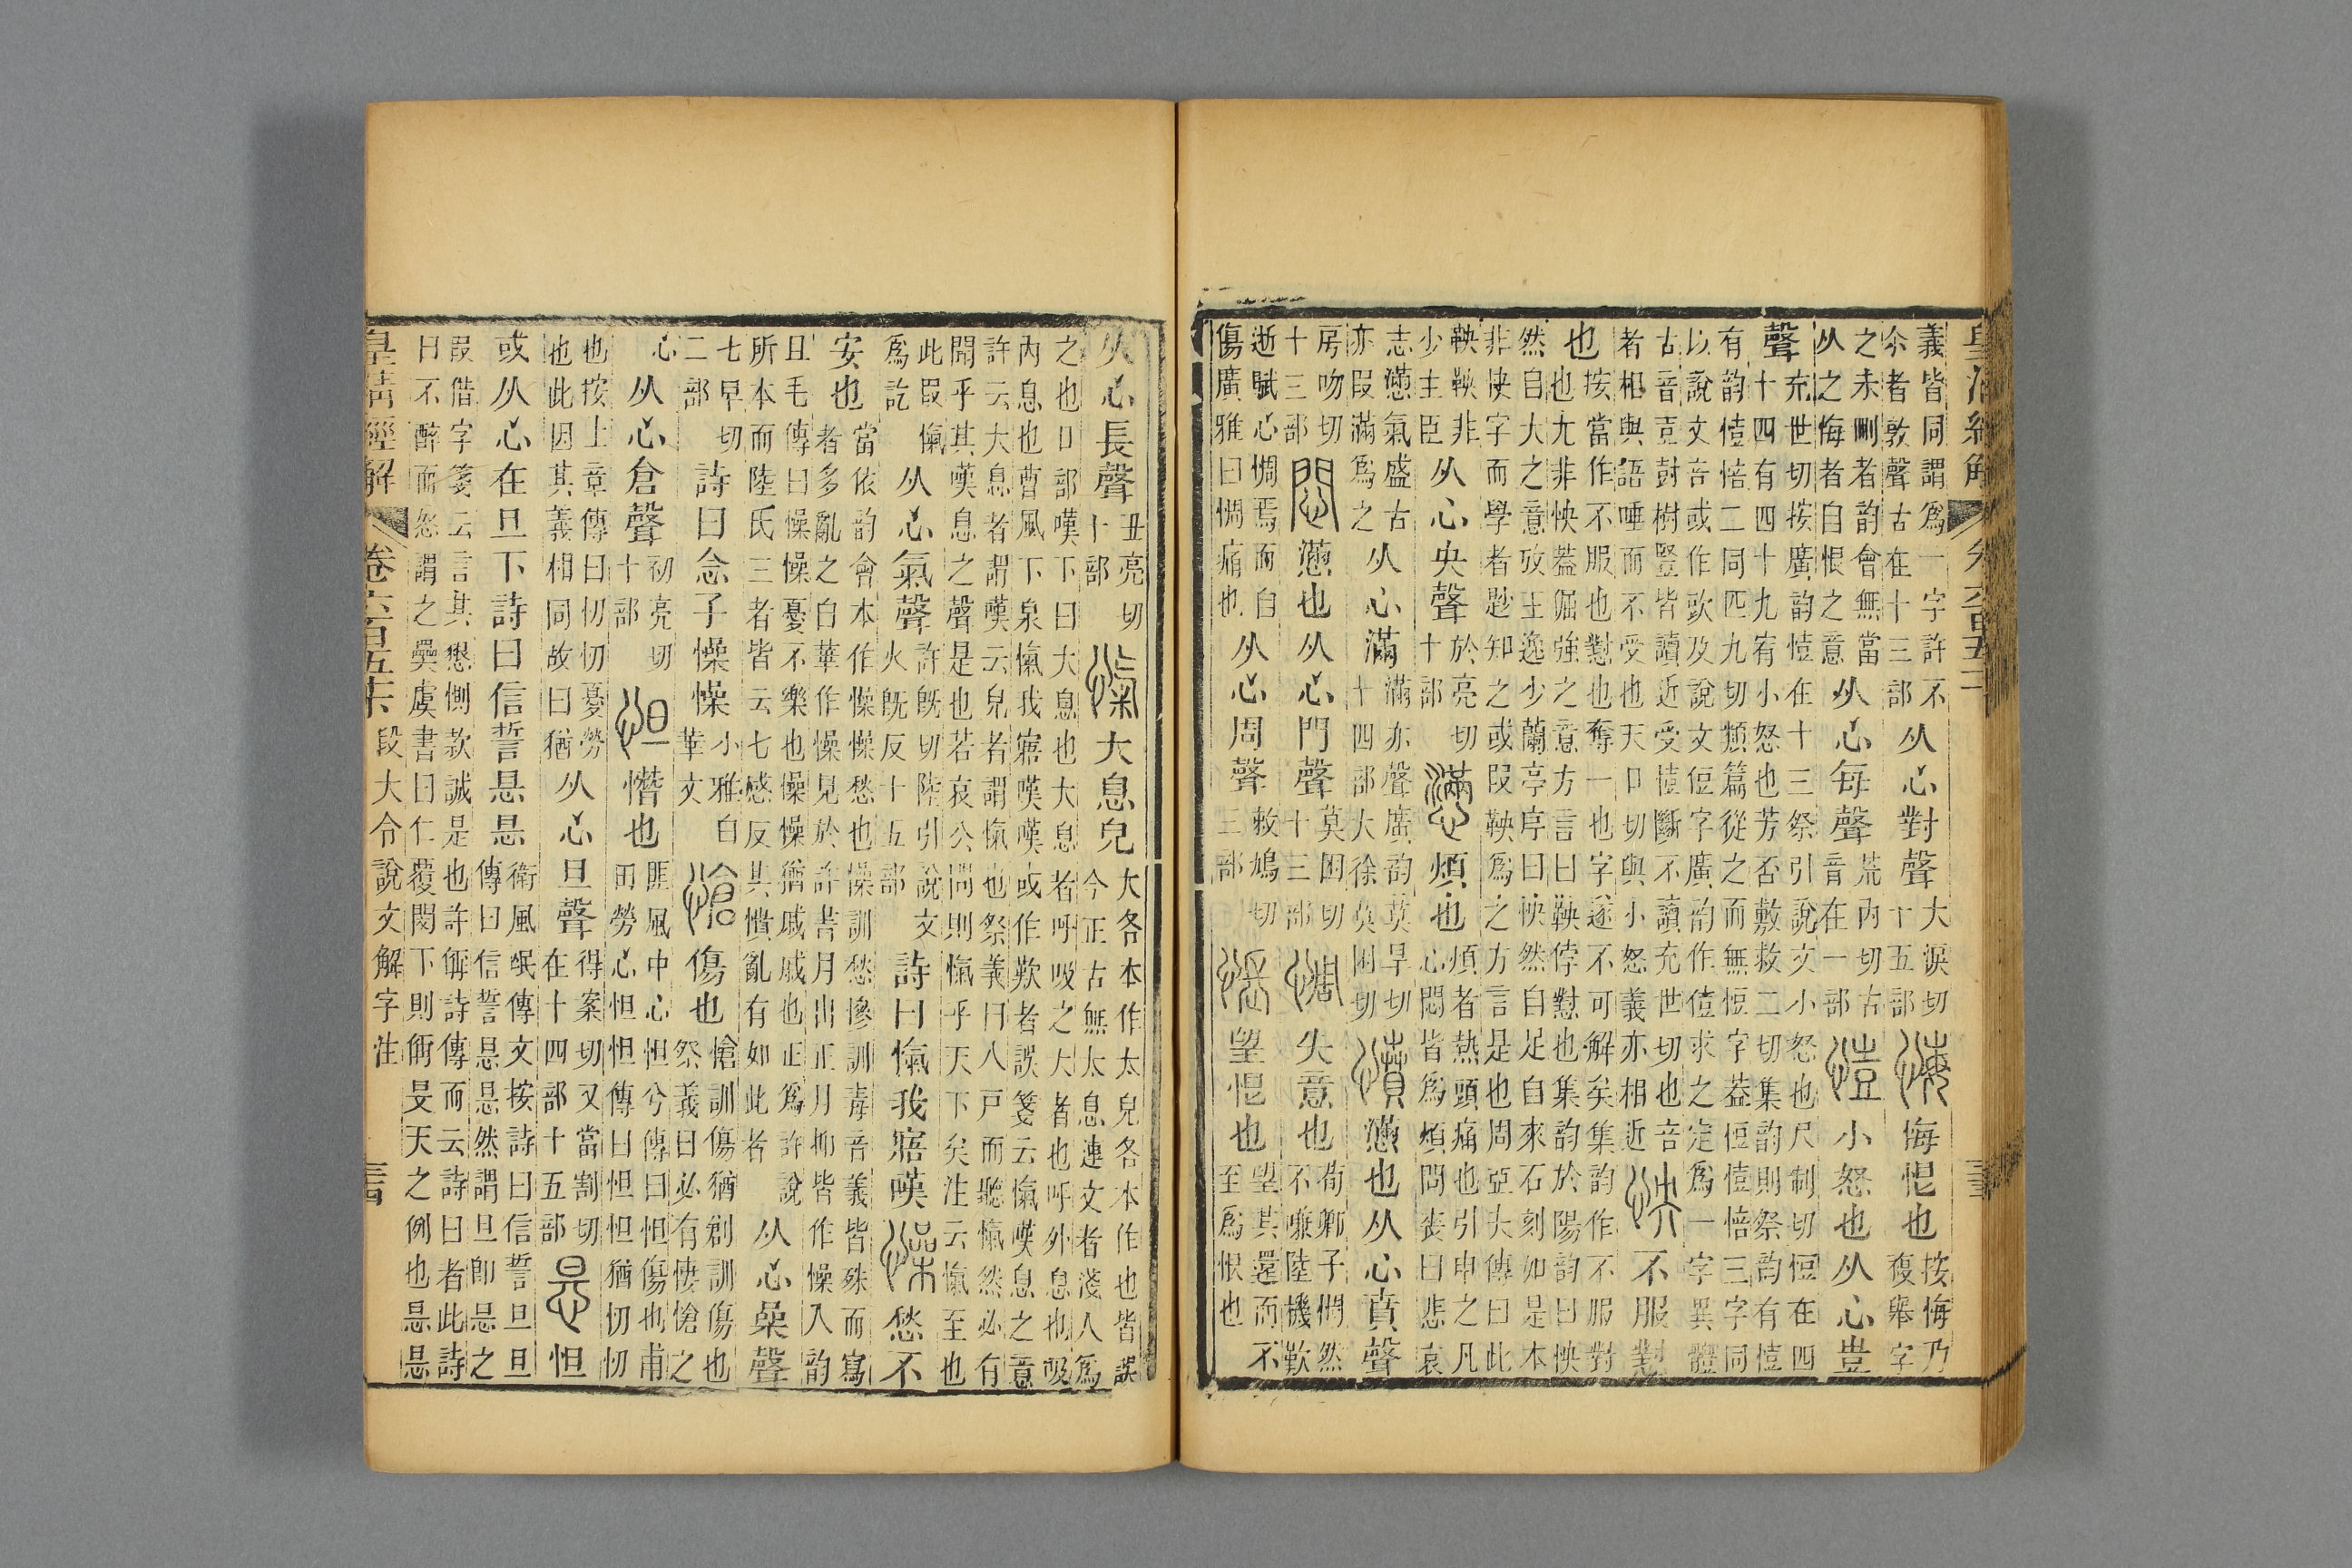 義皆同謂爲一字許不
今者敦聲古在十三部
从心對聲
大淚切
十五部
悔恨也
按悔乃
複舉字
之未刪者韵會無當
从之悔者自恨之意
从心每聲
荒內切古
音在一部
小怒也从心豈
聲
充世切按廣韵㥉在十三祭引說文小怒也尺制切㤱在四
十四有四十九宥小怒也芳否敷救二切集韵則祭韵有㥉
有韵㥉㤱二同匹九切類篇從之而無㤱字葢㤱㥉㤱三字同
以說文咅或作㰯及說文㤱字廣韵作㥉求之定爲一字異體
古音壴尌樹豎皆讀近受㥉斷不讀充世切也咅
者相與語唾而不受也天口切與小怒義亦相近
怏
不服懟
也
按當作不服也懟也奪一也字遂不可解矣集韵作不服對
也尢非怏葢倔強之意方言曰鞅侼懟也集韵於陽韵曰怏
然自大之意攷王逸少蘭亭序曰怏然自足自來石刻如是本
非怏字而學者尟知之或叚鞅爲之方言是也周亞夫傳曰此
鞅鞅非
少主臣
从心央聲
於亮切
十部
懣
煩也
煩者熱頭痛也引申之凡
心悶皆爲煩問喪曰悲哀
志懣氣盛古
亦叚滿爲之
从心滿
滿亦聲廣韵莫旱切
十四部大徐莫困切
憤
懣也从心賁聲
房吻切
十三部
悶
懣也从心門聲
莫困切
十三部
惆
失意也
荀卿子惆然
不嗛陸機歎
逝賦心惆焉而自
傷廣雅曰惆痛也
从心周聲
敕鳩切
三部
悵
望恨也
望其還而不
至爲恨也
从心長聲
丑亮切
十部
愾
大息皃
大各本作太皃各本作也皆誤
今正古無太息連文者淺人爲
之也口部嘆下曰大息也大息者呼吸之大者也呼外息也吸
內息也曹風下泉愾我寤嘆嘆或作歎者誤箋云愾嘆息之意
許云大息者謂嘆云皃者謂愾也祭義曰八戶而聽愾然必有
聞乎其嘆息之聲是也若哀公問則愾乎天下矣注云愾至也
此叚愾
爲訖
从心氣聲
許旣切陸引說文
火旣反十五部
詩曰愾我寤嘆
懆
愁不
安也
當依韵會本作懆懆愁也懆訓愁慘訓毒音義皆殊而寫
者多亂之白華作懆見於許書月出正月抑皆作懆入韵
且毛傳曰懆懆憂不樂也懆懆猶戚戚也正爲許說
所本而陸氏三者皆云七感反其憒亂有如此者
从心喿聲
七早切
二部
詩曰念子懆懆
小雅白
華文
愴
傷也
愴訓傷猶創訓傷也
祭義曰必有悽愴之
心
从心倉聲
初亮切
十部
怛
憯也
匪風中心怛兮傳曰怛傷也甫
田勞心怛怛傳曰怛怛猶忉忉
也按上章傳曰忉忉憂勞
也此因其義相同故曰猶
从心旦聲
得案切又當割切
在十四部十五部
悬
怛
或从心在旦下詩曰信誓悬悬
衛風氓傳文按詩曰信誓旦旦
傳曰信誓悬悬然謂旦卽悬之
叚借字箋云言其懇惻款誠是也許偁詩傳而云詩曰者此詩
曰不醉而怒謂之奰虞書曰仁覆閔下則偁旻天之例也悬悬
皇清經解 卷六百五十 段大令說文解字注